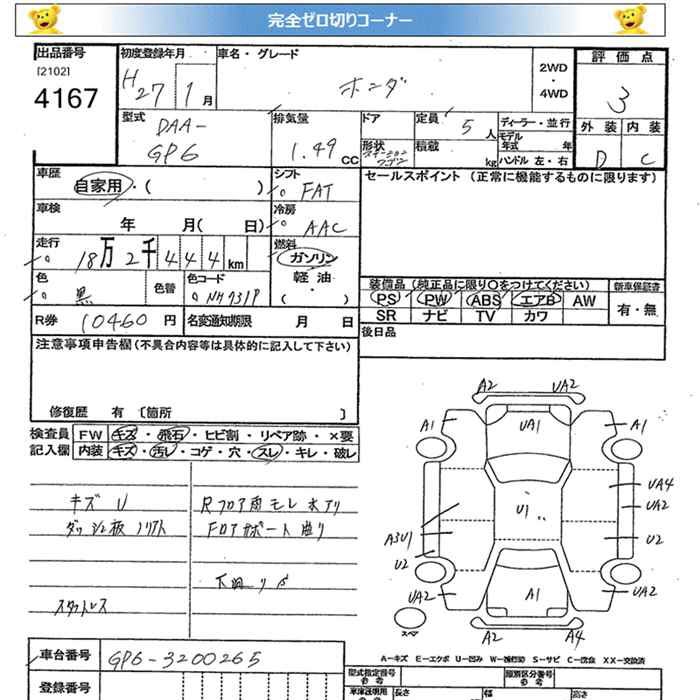 完全ゼロ切りコーナー
出品番号
[2102]
4167
初度登録年月
H27 1 月
車名・グレード
ホンダ
2WD
・
4WD
評価点
3
外装 内装
D C
型式
DAA-
GP6
排気量
1.49 CC
ドア
形状
ステーション
ワゴン
定員 5 人
積載 kg
ディーラー・並行
モデル
年式 年
ハンドル 左・右
車歴
自家用・( )
シフト
FAT
セールスポイント (正常に機能するものに限ります)
車検
年 月( 日)
冷房
AAC
走行
18万2千444km
燃料
ガソリン
軽油
・
( )
色
黒
色替
色コード
NH731P
装備品 (純正品に限り〇をつけてください)
新車保証書
PS PW ABS エアB AW
SR ナビ TV カワ
有・無
R券 10460 円
名変通知期限 月 日
後日品
注意事項申告欄(不具合内容等は具体的に記入して下さい)
修復歴 有 〔箇所 〕
検査員
記入欄
FW キズ・飛石・ヒビ割・リペア跡・×要
内装 キズ・汚レ・コゲ・穴・スレ・キレ・破レ
キズ U
ダッシュ板
Rフロア雨モレ水アリ
Fロアサポート曲り
下廻リサビ
スタットレス
A2 UA2
A1 UA1 A1
UA4
UA2
U1
A3U1 U2
U2
UA2 A1 UA2
スペア
A2 A4
A-キズ E-エクボ U-凹ミ W-補修跡 S-サビ C-腐食 XX-交換済
車台番号
GP6-3200265
登録番号
型式指定番号
参考
類別区分番号
参考
車庫証明用
長さ
幅
高さ